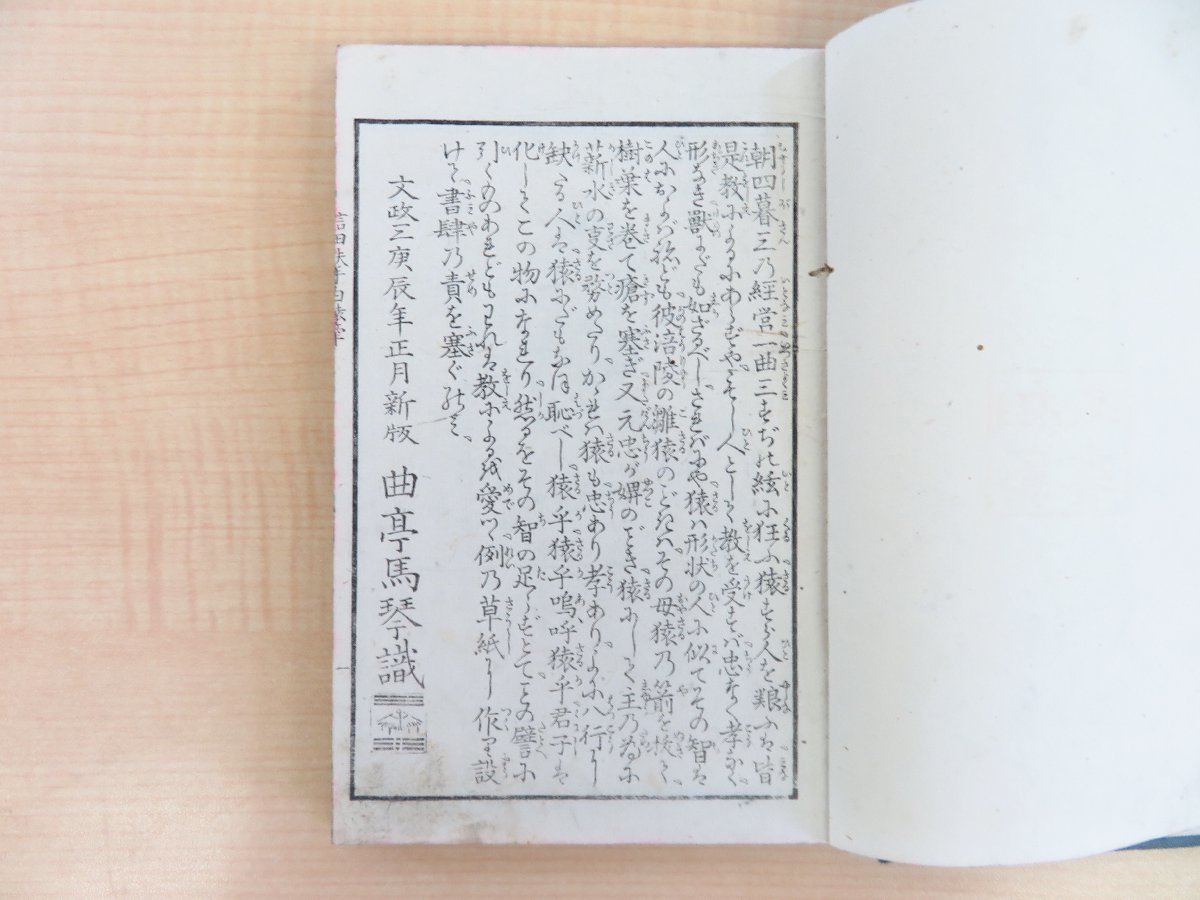 朝四暮三乃経営一曲三すぢの絃に狂ふ猿すら人を難ふは皆
是教によるにあらずやもし人として教を受ずば忠なく孝なく
形なき獣にだも如ざるべしされば猿ハ形状の人に似てその智は
人におよばねども彼涪陵の雛猿のごときハその母猿乃箭を抜く
樹葉を巻て瘡を塞ぎ又元忠が婢のごとき猿にして主乃為に
薪水の事を務めたりかゝれバ猿も忠あり孝ありよに八行に
缺たる人は猿にだもなほ恥べし猿乎猿乎嗚呼猿乎君子は
化してこの物になれり然るをその智の足らずとてことの譬に
引くものあれどもわれは教によるを愛つゝ例乃草紙に作り設
けて書肆乃責を塞ぐのミ
文政三庚辰年正月新版 曲亭馬琴識